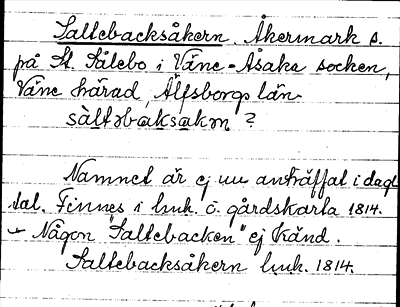 Saltebacksåkern. Åkermark s.
på St. Sålebo i Väne-Åsaka socken,
Väne härad, Älfsborgs län.
sàltəbaksakɔn ?
Namnet är ej nu anträffat i dagl
tal. Finnes i bruk. ö. gårdskarta 1814.
– Någon "Saltebacken" ej känd.
Saltebacksåkern bruk. 1814.